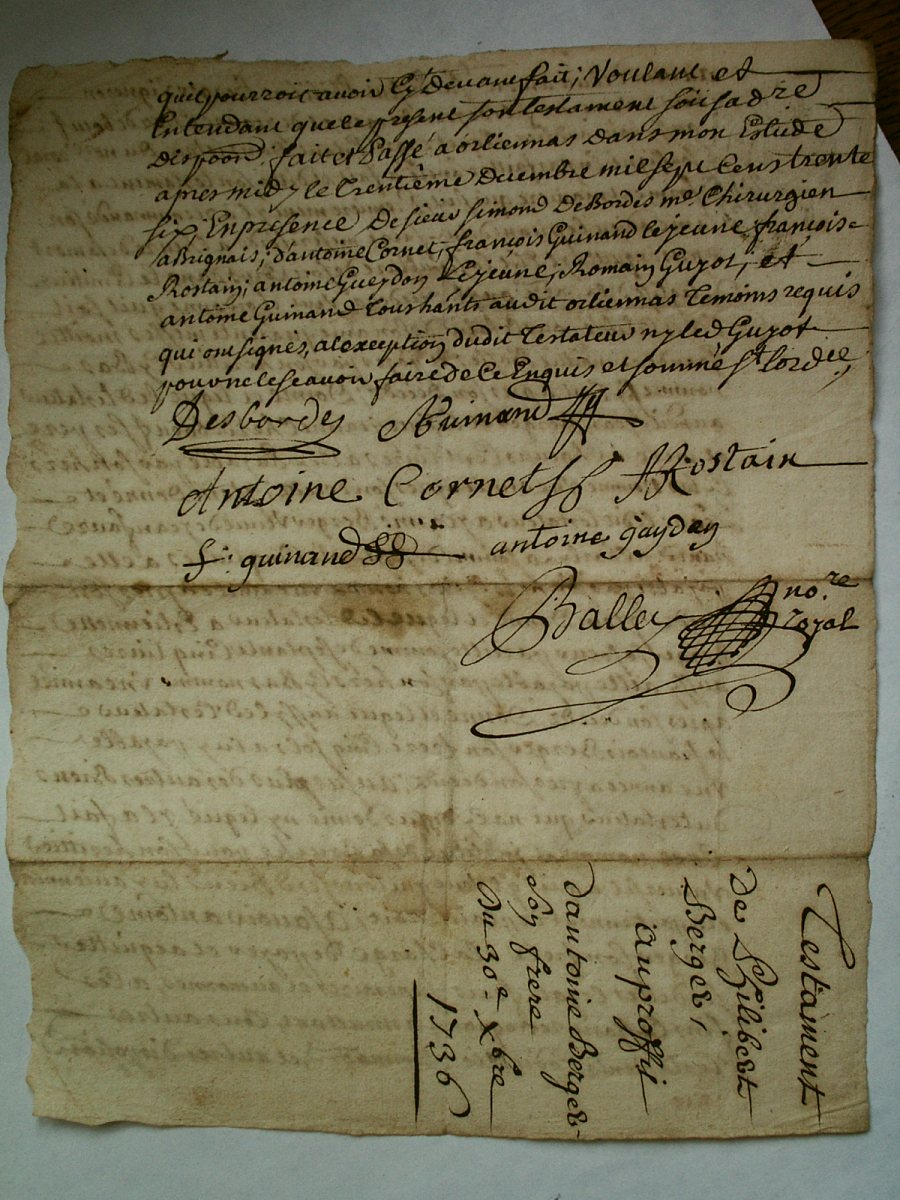 quil pourroit avoir Cy devant fait; Voulant et
Entendant que le present son testament soit sa dre
dispoon; fait et Passé a orliennas dans mon Estude
apres midy le trentième decembre mil sept Cens trente
six Enpresence de sieur simond DeBordes me Chirurgien
a Brignais; d'antoine Cornet, françois Guinand le jeune, françois
Rostain; antoine Gueydon Le jeune; Romain Guyot; et
antoine Guinand tous hants audit orliennas temoins requis
qui ont signés, a lexception dudit testateur ny led Guyot
pour ne le scavoir faire de Ce Enquis et sommé st. lordce;
Desbordes Aguinand
Antoine Cornet ARostain
f. guinand antoine gaydon
Balley nore
royal
Testament
De Philibert
Berger,
auproffit
dantoine Berger
Soy frere
Du 30e Xbre
1736